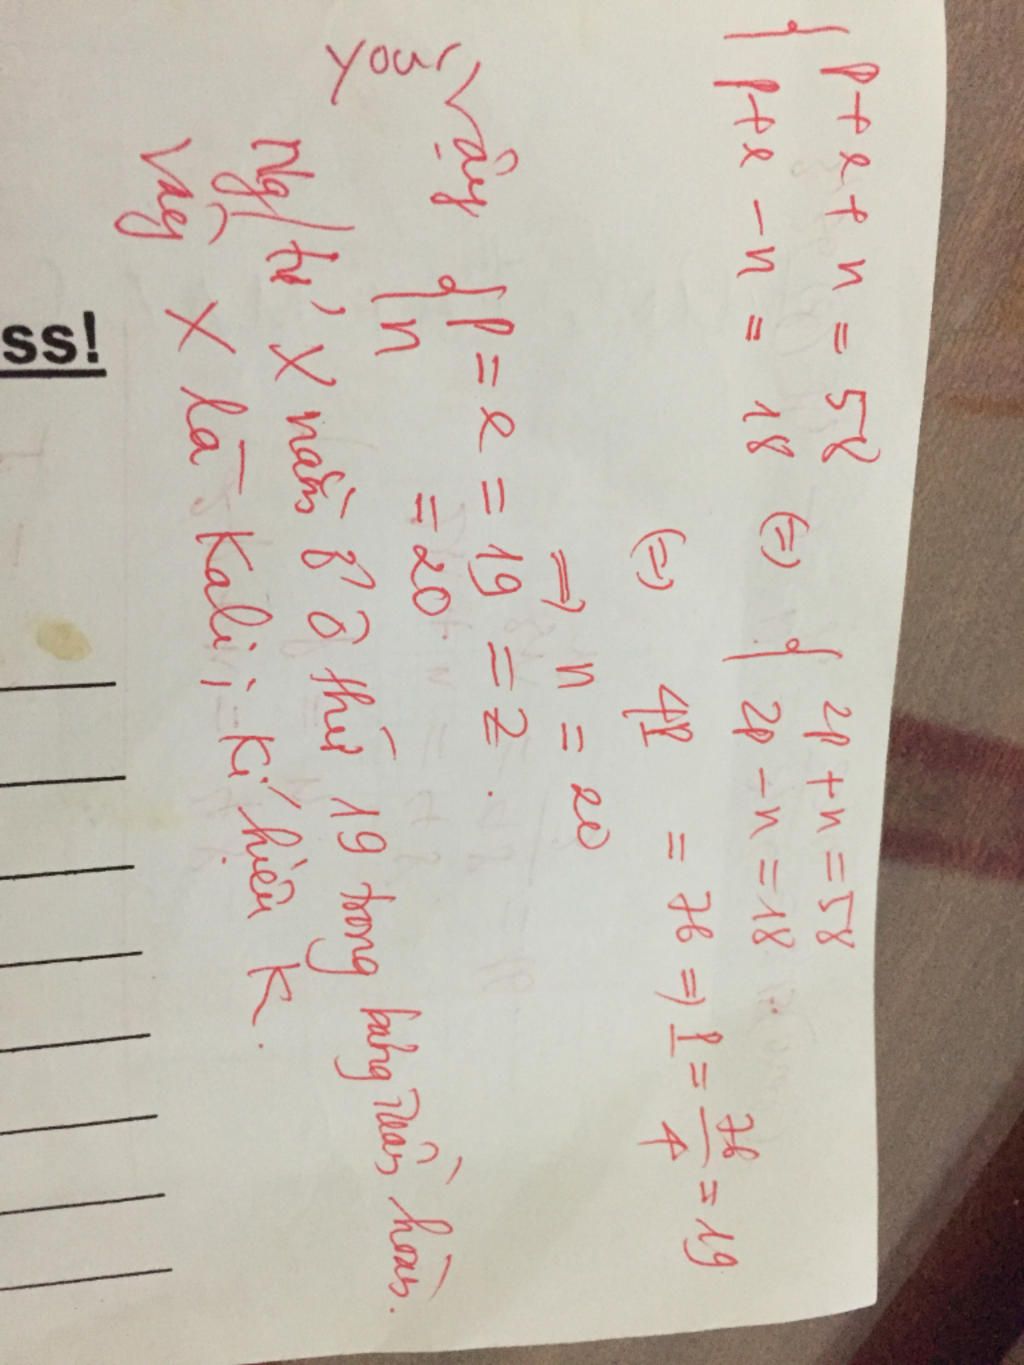 { p + e + n = 58
{ p + e - n = 18 (=) { 2p + n = 58
{ 2p - n = 18
(=) 4p = 76 => p = 76/4 = 19
=> n = 20
Vậy { p = e = 19 = Z.
{ n = 20
You
Ng/tử X nằm ở ô thứ 19 trong bảng tuần hoàn.
Vậy X là Kali, Kí hiệu K.
ss!